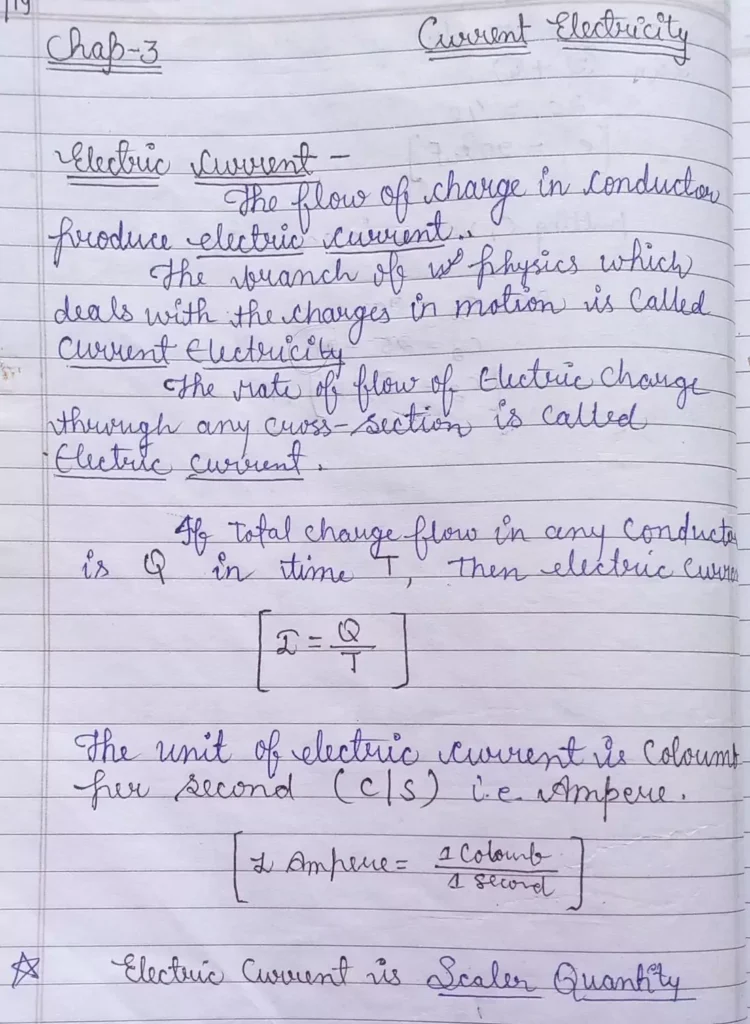 119
Chap-3
Current Electricity
Electric current -
The flow of charge in conductor
produce electric current.
The branch of physics which
deals with the charges in motion is called
Current Electricity
The rate of flow of Electric charge
through any cross-section is called
Electric current.
If total charge flow in any conducto
is Q in time T, then electric curre
[I = Q/T]
The unit of electric current is Coloumb
per second (C/S) i.e. Ampere.
[1 Ampere = 1 Colomb / 1 second]
☆ Electric Current is Scaler Quantity